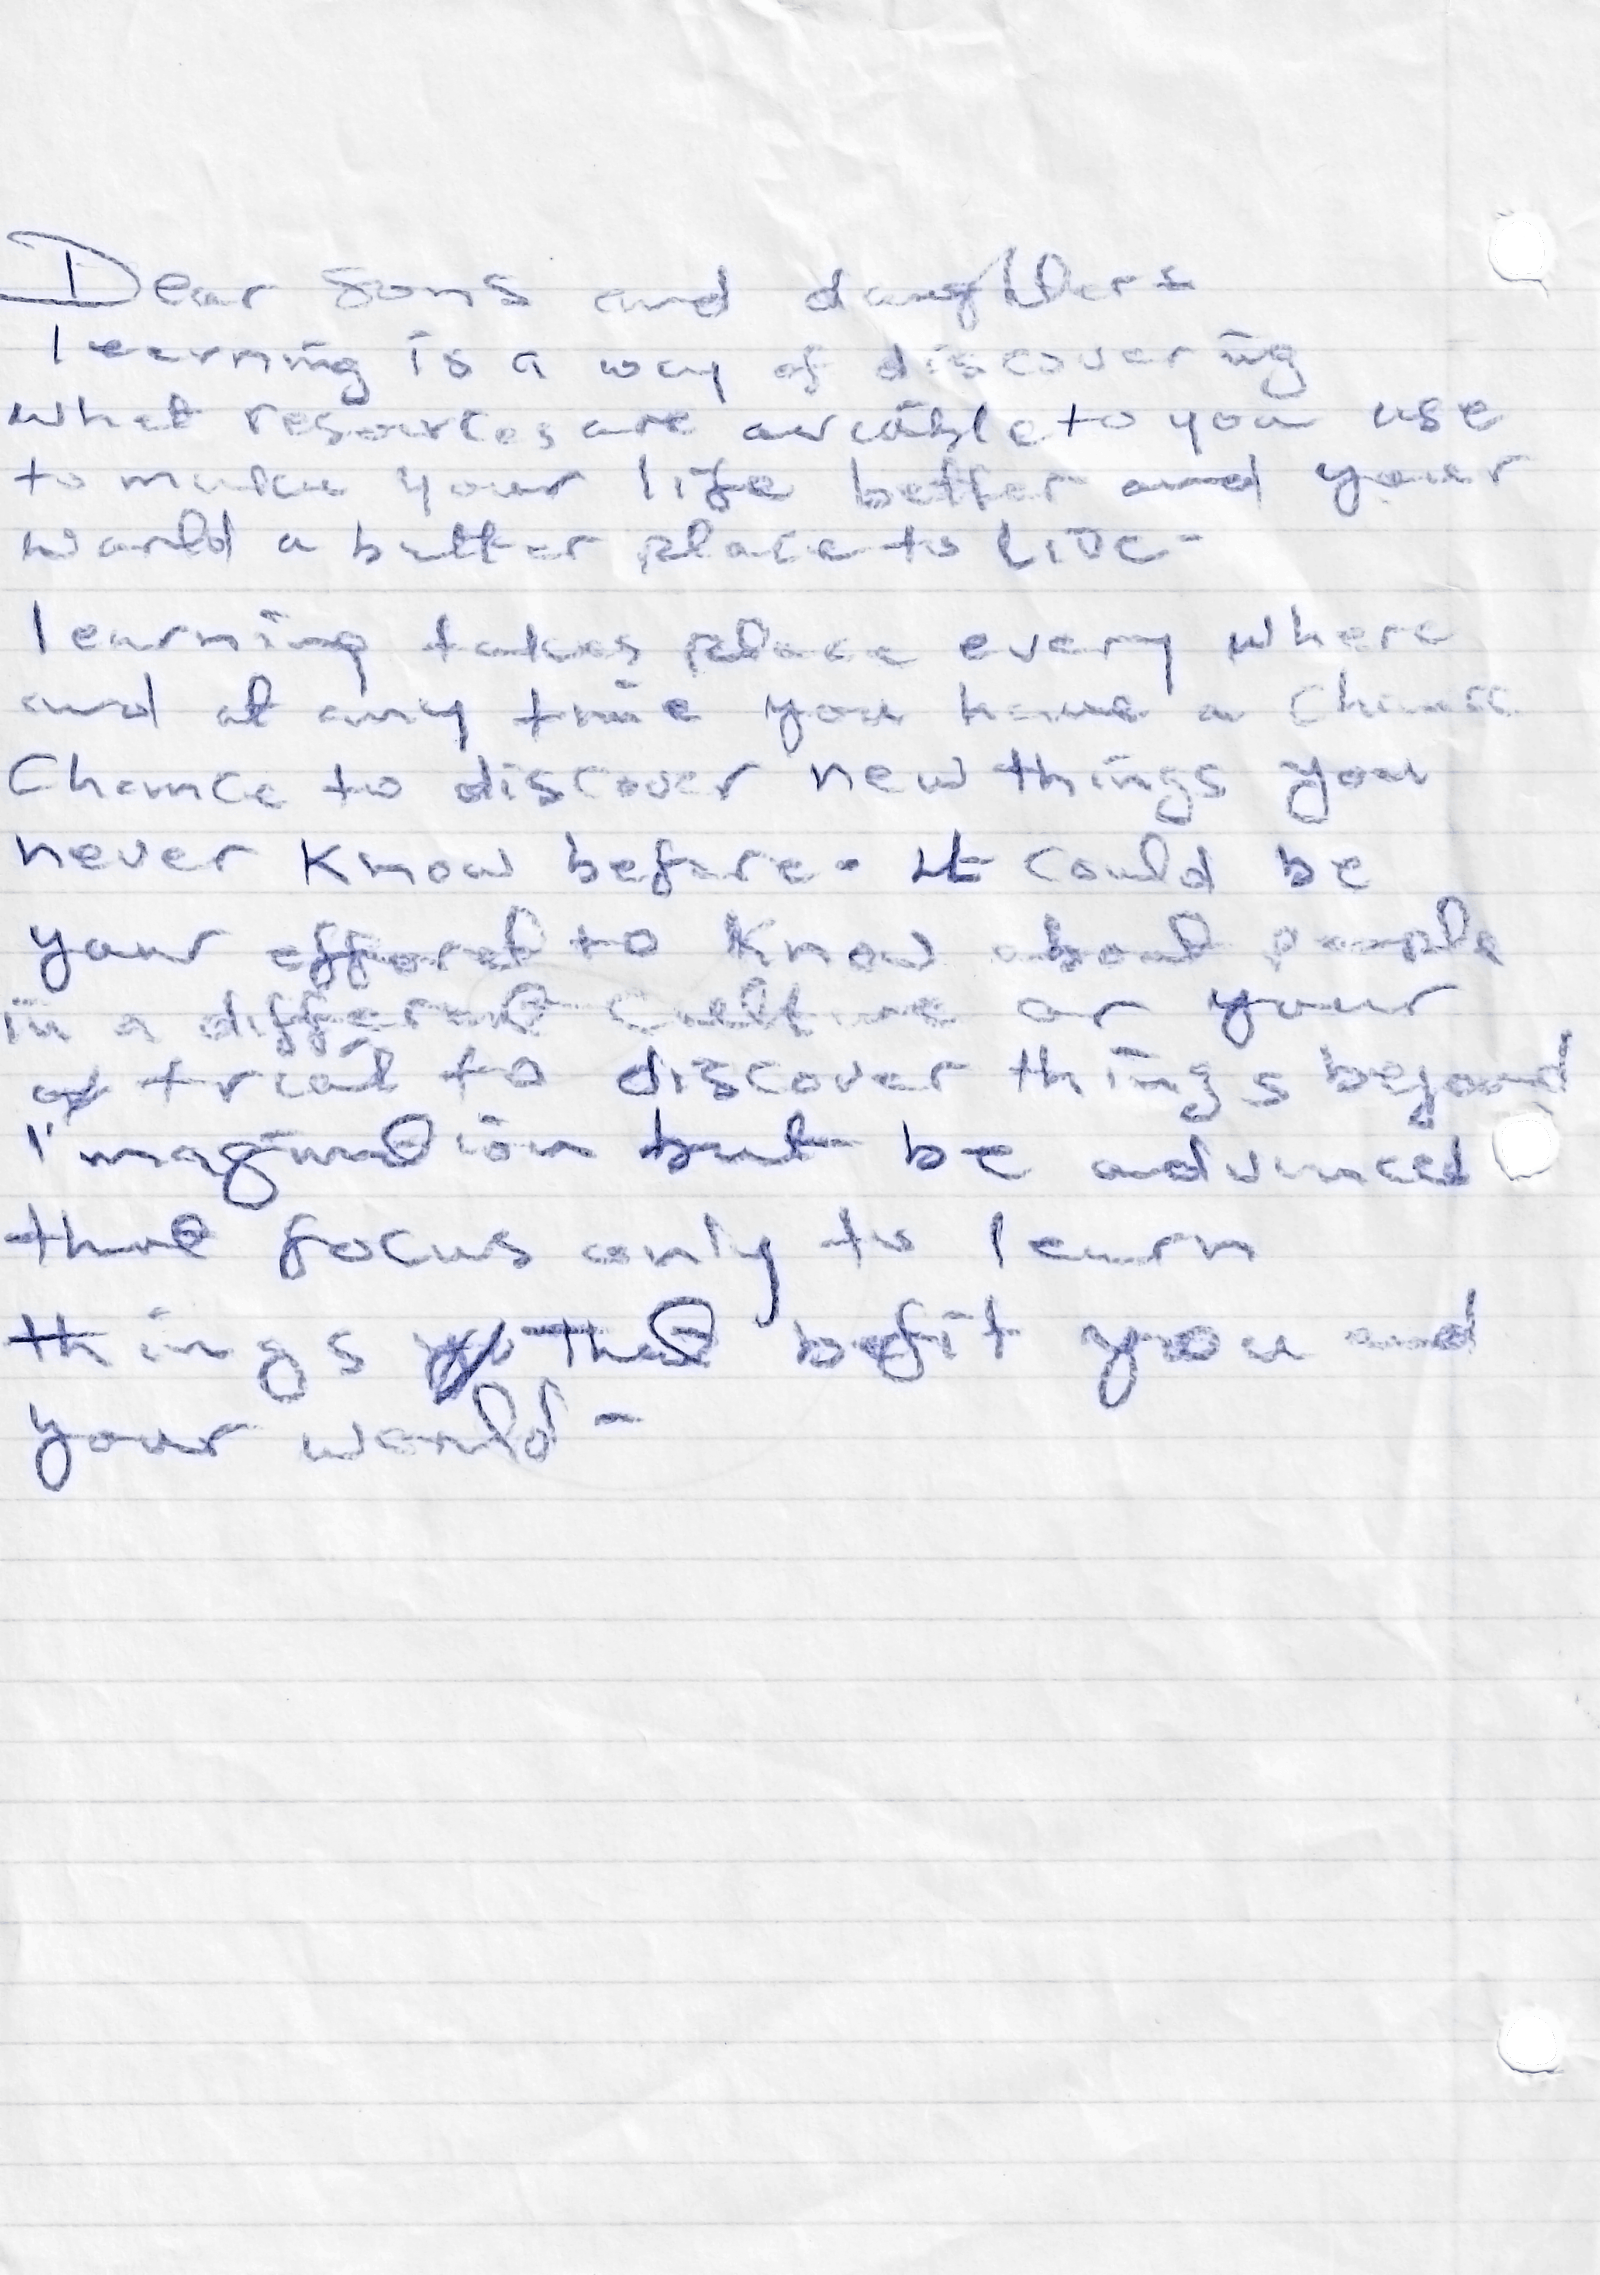 Dear Sons and daughters
learning is a way of discovering
what resources are avaible to you use
to make your life better and your
world a better place to Live.
learning takes place every where
and at any time you have a chance
Chance to discover new things you
never know before. It could be
your efforet to know about people
in a different culture or your
trial to discover things beyond
imagination but be advanced
that focus only to learn
things that befit you and
your world.